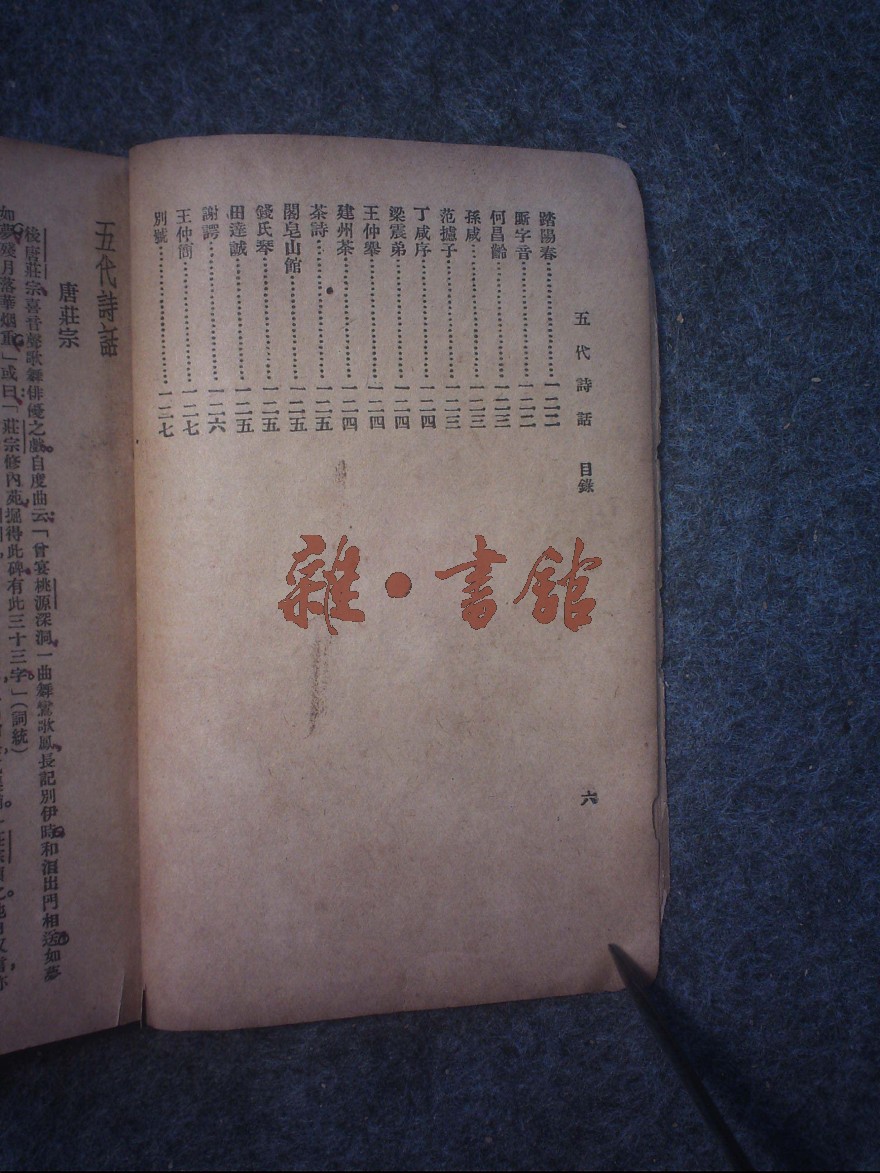 五代詩話 目錄 六
踏陽春……一二二
斷字音……一二二
何昌齡……一二三
孫咸……一二三
范攄子……一二三
丁咸序……一二四
梁震弟……一二四
王仲舉……一二四
建州茶……一二四
茶詩……一二五
閣皂山館……一二五
錢氏琴……一二五
田達誠……一二五
謝諤……一二六
王仲簡……一二七
別號……一三七
雜·書館
五代詩話
唐莊宗
後唐莊宗喜音聲歌舞俳優之戲自度曲云「曾宴桃源深洞一曲舞鸞歌鳳長記別伊時和淚出門相送如夢
如夢殘月落華烟重」或曰「莊宗修內苑掘得此碑有此三十三字」(詞統)